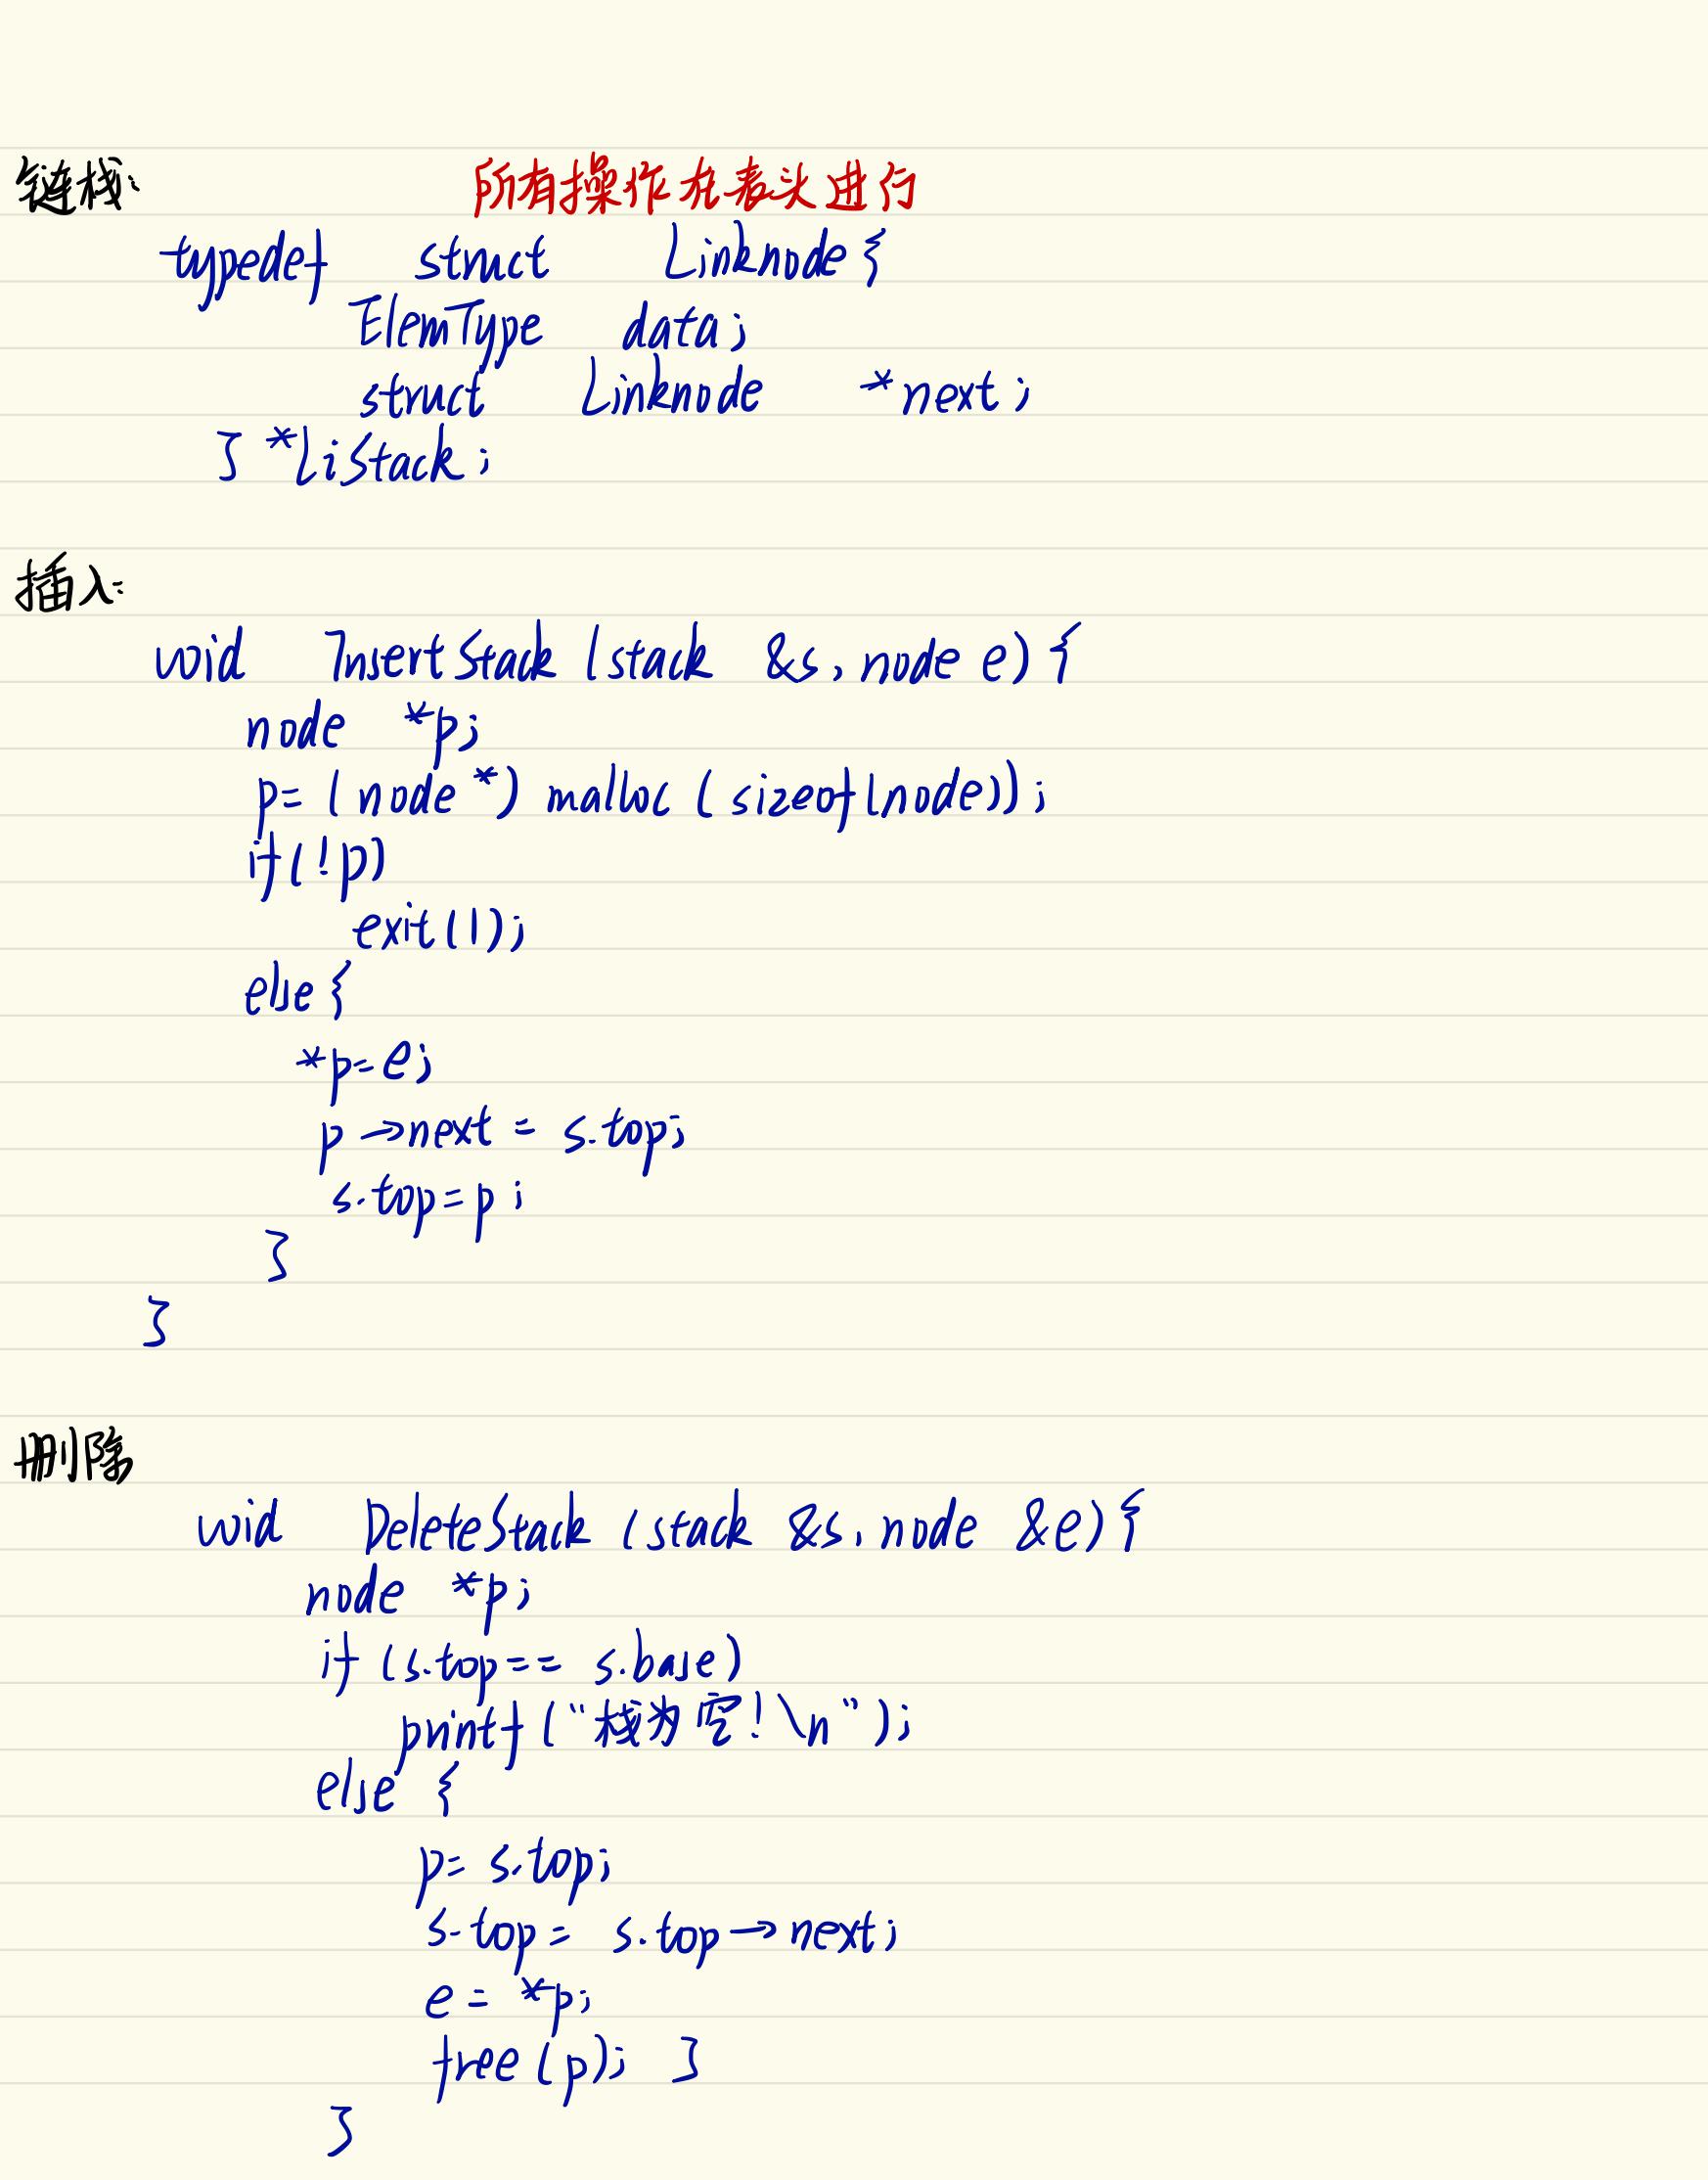 链栈: 所有操作在表头进行
typedef struct Linknode{
ElemType data;
struct Linknode *next;
} *LiStack;
插入:
void InsertStack (stack &s, node e){
node *p;
p= (node *) malloc (sizeof(node));
if(!p)
exit(1);
else{
*p=e;
p→next = s.top;
s.top=p;
}
}
删除
void DeleteStack (stack &s, node &e){
node *p;
if (s.top== s.base)
printf ("栈为空!\n");
else {
p= s.top;
s.top= s.top→next;
e = *p;
free (p); }
}